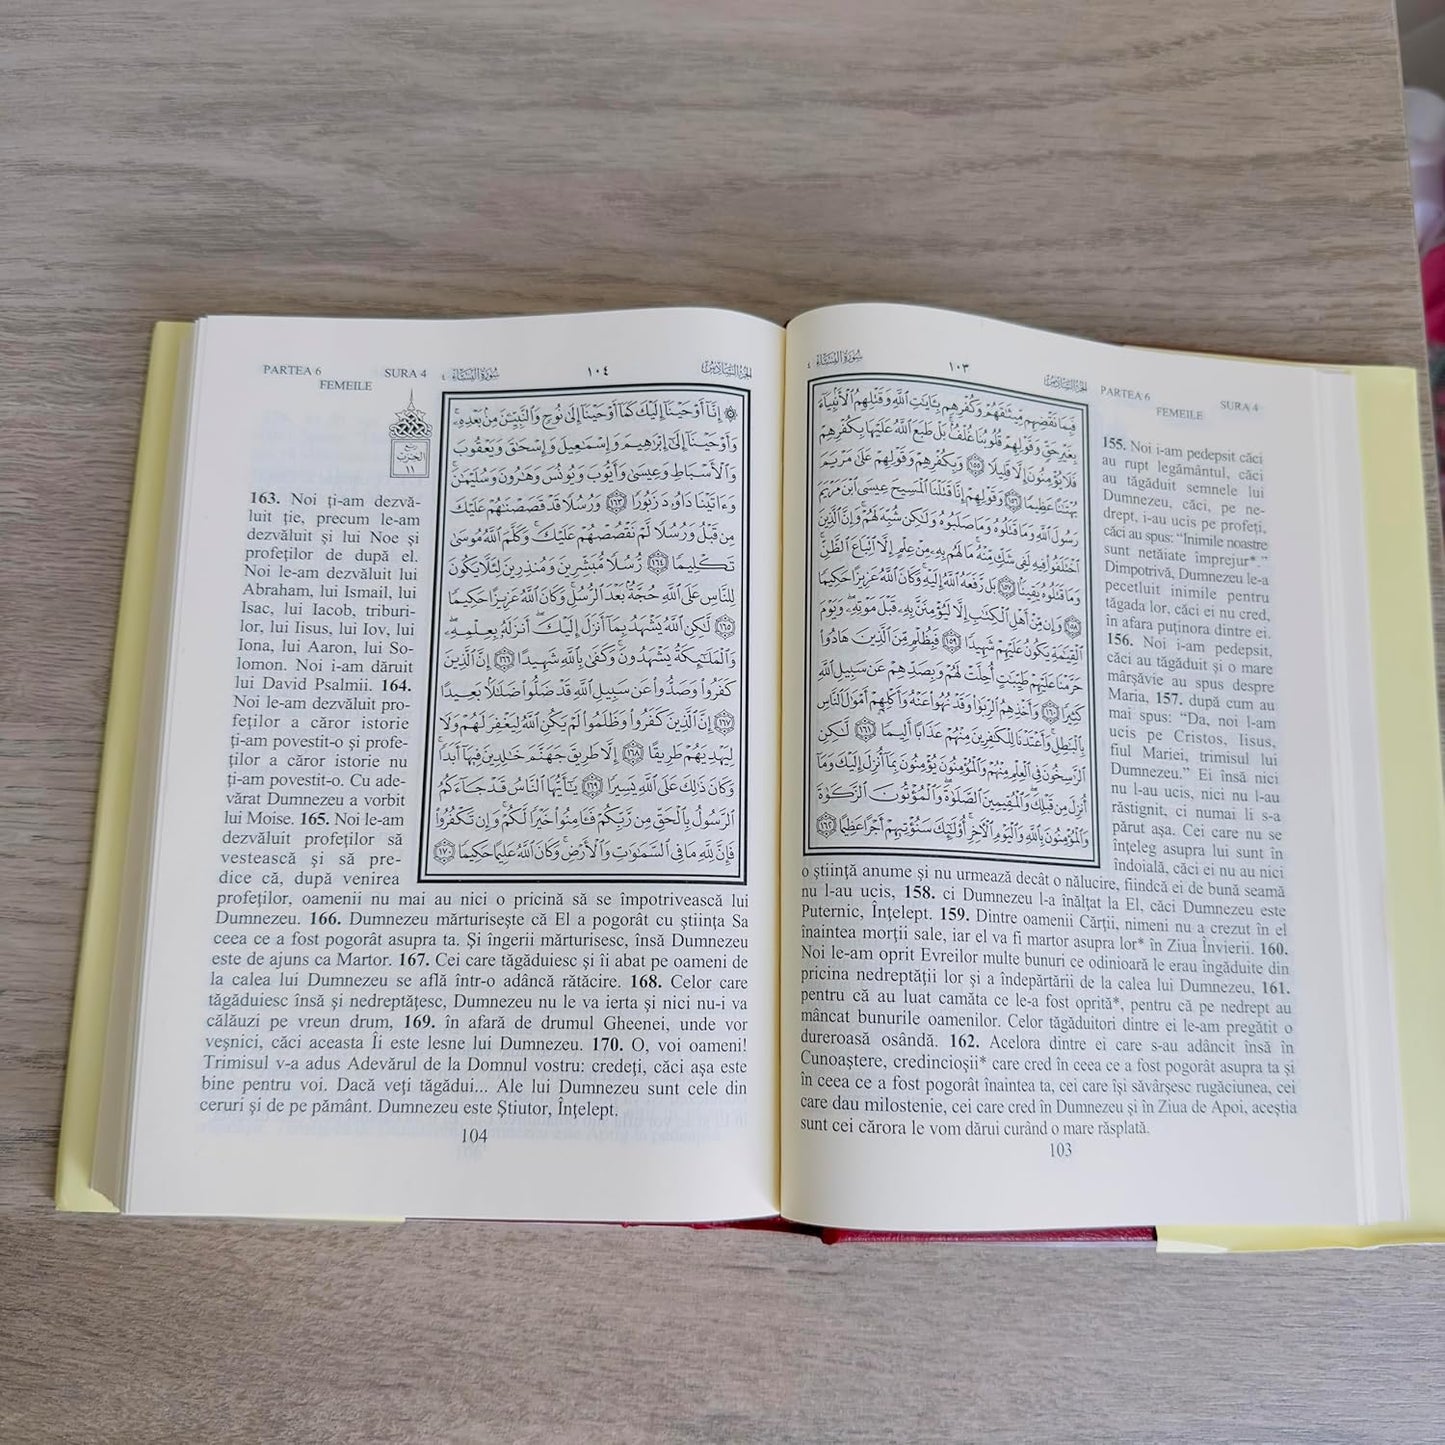 سُورَةُ النِّسَاءِ ٤
١٠٣
الجُزْءُ السَّادِسُ
PARTEA 6 SURA 4
FEMEILE
فَبِمَا نَقْضِهِم مِّيثَٰقَهُمْ وَكُفْرِهِم بِـَٔايَٰتِ ٱللَّهِ وَقَتْلِهِمُ ٱلْأَنۢبِيَآءَ
بِغَيْرِ حَقٍّ وَقَوْلِهِمْ قُلُوبُنَا غُلْفٌۢ ۚ بَلْ طَبَعَ ٱللَّهُ عَلَيْهَا بِكُفْرِهِمْ
فَلَا يُؤْمِنُونَ إِلَّا قَلِيلًا ١٥٥ وَبِكُفْرِهِمْ وَقَوْلِهِمْ عَلَىٰ مَرْيَمَ
بُهْتَٰنًا عَظِيمًا ١٥٦ وَقَوْلِهِمْ إِنَّا قَتَلْنَا ٱلْمَسِيحَ عِيسَى ٱبْنَ مَرْيَمَ
رَسُولَ ٱللَّهِ وَمَا قَتَلُوهُ وَمَا صَلَبُوهُ وَلَٰكِن شُبِّهَ لَهُمْ ۚ وَإِنَّ ٱلَّذِينَ
ٱخْتَلَفُوا۟ فِيهِ لَفِى شَكٍّ مِّنْهُ ۚ مَا لَهُم بِهِۦ مِنْ عِلْمٍ إِلَّا ٱتِّبَاعَ ٱلظَّنِّ ۚ
وَمَا قَتَلُوهُ يَقِينًۢا ١٥٧ بَل رَّفَعَهُ ٱللَّهُ إِلَيْهِ ۚ وَكَانَ ٱللَّهُ عَزِيزًا حَكِيمًا
١٥٨ وَإِن مِّنْ أَهْلِ ٱلْكِتَٰبِ إِلَّا لَيُؤْمِنَنَّ بِهِۦ قَبْلَ مَوْتِهِۦ ۖ وَيَوْمَ
ٱلْقِيَٰمَةِ يَكُونُ عَلَيْهِمْ شَهِيدًا ١٥٩ فَبِظُلْمٍ مِّنَ ٱلَّذِينَ هَادُوا۟
حَرَّمْنَا عَلَيْهِمْ طَيِّبَٰتٍ أُحِلَّتْ لَهُمْ وَبِصَدِّهِمْ عَن سَبِيلِ ٱللَّهِ
كَثِيرًا ١٦٠ وَأَخْذِهِمُ ٱلرِّبَوٰا۟ وَقَدْ نُهُوا۟ عَنْهُ وَأَكْلِهِمْ أَمْوَٰلَ ٱلنَّاسِ
بِٱلْبَٰطِلِ ۚ وَأَعْتَدْنَا لِلْكَٰفِرِينَ مِنْهُمْ عَذَابًا أَلِيمًا ١٦١ لَّٰكِنِ
ٱلرَّٰسِخُونَ فِى ٱلْعِلْمِ مِنْهُمْ وَٱلْمُؤْمِنُونَ يُؤْمِنُونَ بِمَآ أُنزِلَ إِلَيْكَ وَمَآ
أُنزِلَ مِن قَبْلِكَ ۚ وَٱلْمُقِيمِينَ ٱلصَّلَوٰةَ ۚ وَٱلْمُؤْتُونَ ٱلزَّكَوٰةَ
وَٱلْمُؤْمِنُونَ بِٱللَّهِ وَٱلْيَوْمِ ٱلْءَاخِرِ أُو۟لَٰٓئِكَ سَنُؤْتِيهِمْ أَجْرًا عَظِيمًا ١٦٢
155. Noi i-am pedepsit căci
au rupt legământul, căci
au tăgăduit semnele lui
Dumnezeu, căci, pe ne-
drept, i-au ucis pe profeţi,
căci au spus: “Inimile noastre
sunt netăiate împrejur*.”
Dimpotrivă, Dumnezeu le-a
pecetluit inimile pentru
tăgada lor, căci ei nu cred,
în afara puţinora dintre ei.
156. Noi i-am pedepsit,
căci au tăgăduit şi o mare
mârşăvie au spus despre
Maria, 157. după cum au
mai spus: “Da, noi l-am
ucis pe Cristos, Iisus,
fiul Mariei, trimisul lui
Dumnezeu.” Ei însă nici
nu l-au ucis, nici nu l-au
răstignit, ci numai li s-a
părut aşa. Cei care nu se
înţeleg asupra lui sunt în
îndoială, căci ei nu au nici
o ştiinţă anume şi nu urmează decât o nălucire, fiindcă ei de bună seamă
nu l-au ucis, 158. ci Dumnezeu l-a înălţat la El, căci Dumnezeu este
Puternic, Înţelept. 159. Dintre oamenii Cărţii, nimeni nu a crezut în el
înaintea morţii sale, iar el va fi martor asupra lor* în Ziua Învierii. 160.
Noi le-am oprit Evreilor multe bunuri ce odinioară le erau îngăduite din
pricina nedreptăţii lor şi a îndepărtării de la calea lui Dumnezeu, 161.
pentru că au luat camăta ce le-a fost oprită*, pentru că pe nedrept au
mâncat bunurile oamenilor. Celor tăgăduitori dintre ei le-am pregătit o
dureroasă osândă. 162. Acelora dintre ei care s-au adâncit însă în
Cunoaştere, credincioşii* care cred în ceea ce a fost pogorât asupra ta şi
în ceea ce a fost pogorât înaintea ta, cei care îşi săvârşesc rugăciunea, cei
care dau milostenie, cei care cred în Dumnezeu şi în Ziua de Apoi, aceştia
sunt cei cărora le vom dărui curând o mare răsplată.
103
PARTEA 6 SURA 4
FEMEILE
سُورَةُ النِّسَاءِ ٤
١٠٤
الجُزْءُ السَّادِسُ
ربع
الحزب
١١
۞ إِنَّآ أَوْحَيْنَآ إِلَيْكَ كَمَآ أَوْحَيْنَآ إِلَىٰ نُوحٍ وَٱلنَّبِيِّـۧنَ مِنۢ بَعْدِهِۦ ۚ
وَأَوْحَيْنَآ إِلَىٰٓ إِبْرَٰهِيمَ وَإِسْمَٰعِيلَ وَإِسْحَٰقَ وَيَعْقُوبَ
وَٱلْأَسْبَاطِ وَعِيسَىٰ وَأَيُّوبَ وَيُونُسَ وَهَٰرُونَ وَسُلَيْمَٰنَ ۚ
وَءَاتَيْنَا دَاوُۥدَ زَبُورًا ١٦٣ وَرُسُلًا قَدْ قَصَصْنَٰهُمْ عَلَيْكَ
مِن قَبْلُ وَرُسُلًا لَّمْ نَقْصُصْهُمْ عَلَيْكَ ۚ وَكَلَّمَ ٱللَّهُ مُوسَىٰ
تَكْلِيمًا ١٦٤ رُّسُلًا مُّبَشِّرِينَ وَمُنذِرِينَ لِئَلَّا يَكُونَ
لِلنَّاسِ عَلَى ٱللَّهِ حُجَّةٌۢ بَعْدَ ٱلرُّسُلِ ۚ وَكَانَ ٱللَّهُ عَزِيزًا حَكِيمًا
١٦٥ لَّٰكِنِ ٱللَّهُ يَشْهَدُ بِمَآ أَنزَلَ إِلَيْكَ ۖ أَنزَلَهُۥ بِعِلْمِهِۦ ۖ
وَٱلْمَلَٰٓئِكَةُ يَشْهَدُونَ ۚ وَكَفَىٰ بِٱللَّهِ شَهِيدًا ١٦٦ إِنَّ ٱلَّذِينَ
كَفَرُوا۟ وَصَدُّوا۟ عَن سَبِيلِ ٱللَّهِ قَدْ ضَلُّوا۟ ضَلَٰلًۢا بَعِيدًا
١٦٧ إِنَّ ٱلَّذِينَ كَفَرُوا۟ وَظَلَمُوا۟ لَمْ يَكُنِ ٱللَّهُ لِيَغْفِرَ لَهُمْ وَلَا
لِيَهْدِيَهُمْ طَرِيقًا ١٦٨ إِلَّا طَرِيقَ جَهَنَّمَ خَٰلِدِينَ فِيهَآ أَبَدًا ۚ
وَكَانَ ذَٰلِكَ عَلَى ٱللَّهِ يَسِيرًا ١٦٩ يَٰٓأَيُّهَا ٱلنَّاسُ قَدْ جَآءَكُمُ
ٱلرَّسُولُ بِٱلْحَقِّ مِن رَّبِّكُمْ فَـَٔامِنُوا۟ خَيْرًا لَّكُمْ ۚ وَإِن تَكْفُرُوا۟
فَإِنَّ لِلَّهِ مَا فِى ٱلسَّمَٰوَٰتِ وَٱلْأَرْضِ ۚ وَكَانَ ٱللَّهُ عَلِيمًا حَكِيمًا ١٧٠
163. Noi ţi-am dezvă-
luit ţie, precum le-am
dezvăluit şi lui Noe şi
profeţilor de după el.
Noi le-am dezvăluit lui
Abraham, lui Ismail, lui
Isac, lui Iacob, triburi-
lor, lui Iisus, lui Iov, lui
Iona, lui Aaron, lui So-
lomon. Noi i-am dăruit
lui David Psalmii. 164.
Noi le-am dezvăluit pro-
feţilor a căror istorie
ţi-am povestit-o şi profe-
ţilor a căror istorie nu
ţi-am povestit-o. Cu ade-
vărat Dumnezeu a vorbit
lui Moise. 165. Noi le-am
dezvăluit profeţilor să
vestească şi să pre-
dice că, după venirea
profeţilor, oamenii nu mai au nici o pricină să se împotrivească lui
Dumnezeu. 166. Dumnezeu mărturiseşte că El a pogorât cu ştiinţa Sa
ceea ce a fost pogorât asupra ta. Şi îngerii mărturisesc, însă Dumnezeu
este de ajuns ca Martor. 167. Cei care tăgăduiesc şi îi abat pe oameni de
la calea lui Dumnezeu se află într-o adâncă rătăcire. 168. Celor care
tăgăduiesc însă şi nedreptăţesc, Dumnezeu nu le va ierta şi nici nu-i va
călăuzi pe vreun drum, 169. în afară de drumul Gheenei, unde vor
veşnici, căci aceasta Îi este lesne lui Dumnezeu. 170. O, voi oameni!
Trimisul v-a adus Adevărul de la Domnul vostru: credeţi, căci aşa este
bine pentru voi. Dacă veţi tăgădui... Ale lui Dumnezeu sunt cele din
ceruri şi de pe pământ. Dumnezeu este Ştiutor, Înţelept.
104